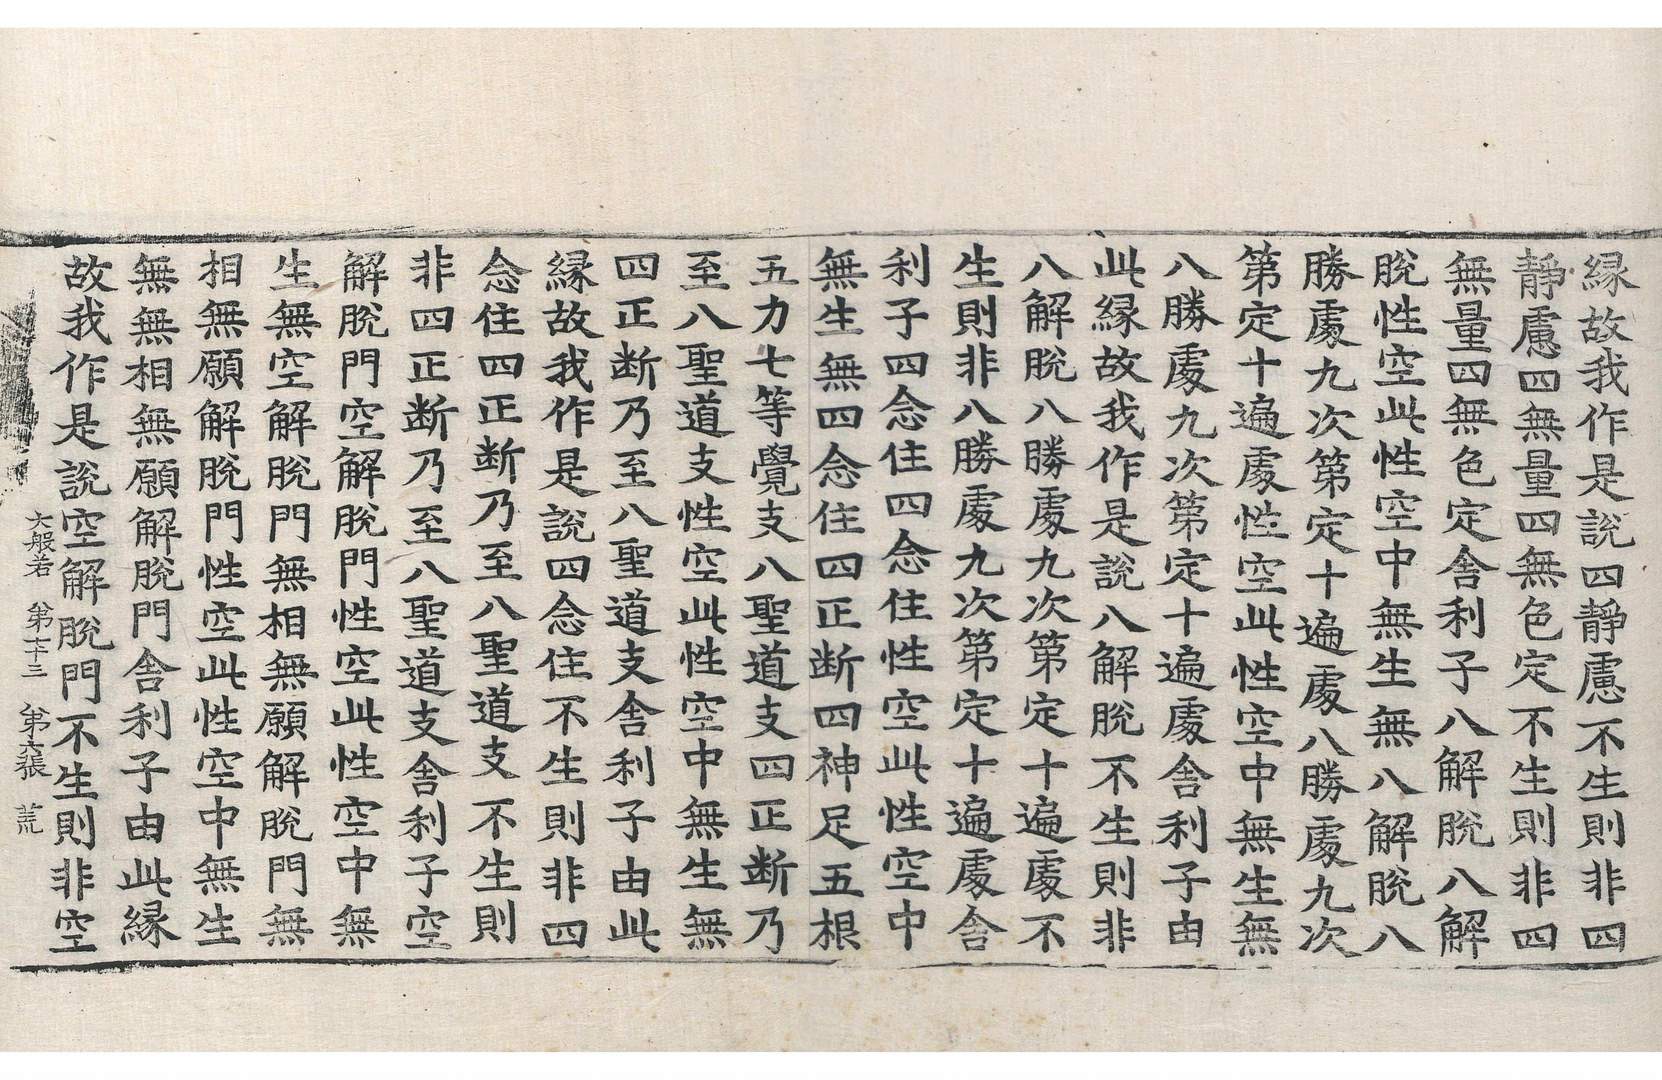 縁故我作是說四靜慮不生則非四
靜慮四無量四無色定不生則非四
無量四無色定舎利子八解脫八解
脫性空此性空中無生無八解脫八
勝處九次第定十遍處八勝處九次
第定十遍處性空此性空中無生無
八勝處九次第定十遍處舎利子由
此縁故我作是說八解脫不生則非
八解脫八勝處九次第定十遍處不
生則非八勝處九次第定十遍處舎
利子四念住四念住性空此性空中
無生無四念住四正断四神足五根
五力七等覺支八聖道支四正断乃
至八聖道支性空此性空中無生無
四正断乃至八聖道支舎利子由此
縁故我作是說四念住不生則非四
念住四正断乃至八聖道支不生則
非四正断乃至八聖道支舎利子空
解脫門空解脫門性空此性空中無
生無空解脫門無相無願解脫門無
相無願解脫門性空此性空中無生
無無相無願解脫門舎利子由此縁
故我作是說空解脫門不生則非空
大般若 第七十三 第六張 荒